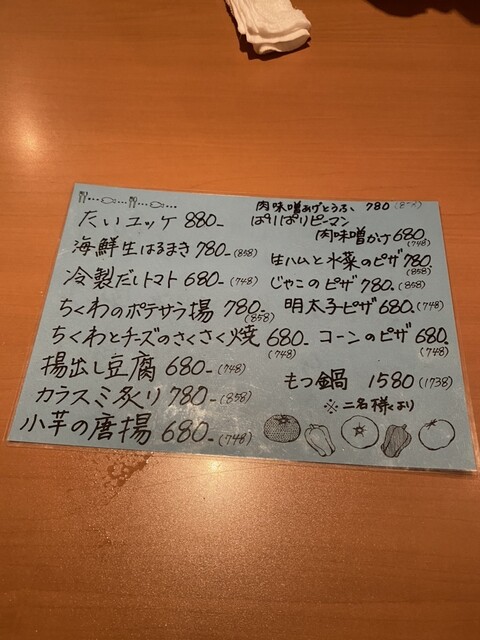 たいユッケ 880-
海鮮生はるまき 780-(858)
冷製だしトマト 680-(748)
ちくわのポテサラ揚 780-(858)
ちくわとチーズのさくさく焼 680-(748)
揚出し豆腐 680-(748)
カラスミ炙り 780-(858)
小芋の唐揚 680-(748)
肉味噌あげとうふ 780(858)
ぱりぱりピーマン
肉味噌がけ 680(748)
生ハムと水菜のピザ 780.(858)
じゃこのピザ 780.(858)
明太子ピザ 680.(748)
コーンのピザ 680.(748)
もつ鍋 1580(1738)
※二名様より